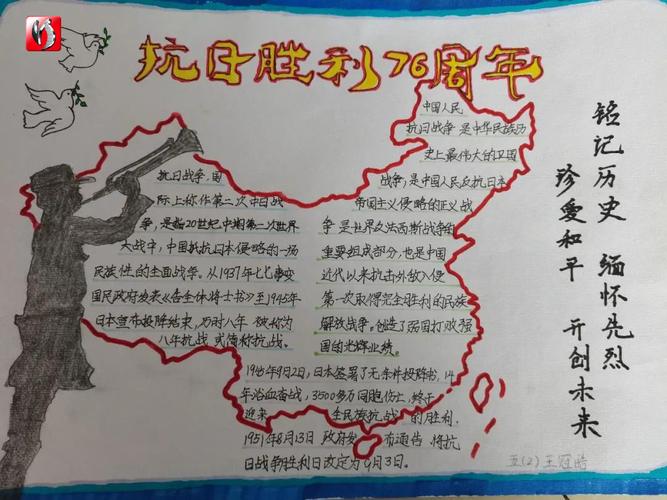 抗日胜利76周年
中国人民
抗日战争是中华民族历
史上最伟大的卫国
战争,是中国人民反抗日本
帝国主义侵略的正义战
争是世界反法西斯战争的
重要组成部分,也是中国
近代以来抗击外敌入侵
第一次取得完全胜利的民族
解放战争。创造了弱国打败强
国的光辉业绩
抗日战争,国
际上称作第二次中日战
争,是指20世纪中期第二次世界
大战中,中国抵抗日本侵略的一场
民族性的全面战争。从1937年七七事变
国民政府发表《告全体将士书》至1945年
日本宣布投降结束,历时八年 被称为
八年抗战 或简称抗战。
1945年9月2日,日本签署了无条件投降书,14
年浴血奋战,3500多万同胞伤亡,终于
迎来 全民族抗战 的胜利.
1951年8月13日 政府发 布通告 将抗
日战争胜利日改定为9月3日.
铭记历史 缅怀先烈
珍爱和平 开创未来
五(2)王冠皓